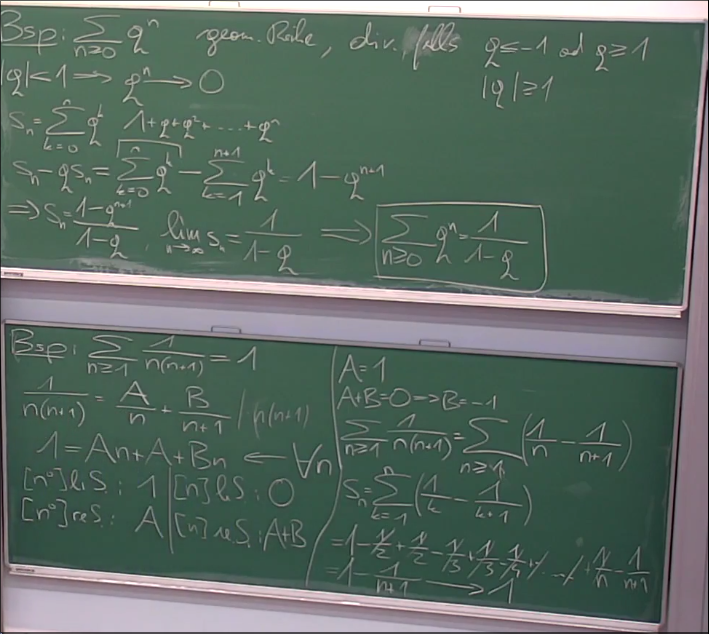 Bsp: ∑_{n≥0} q^n geom. Reihe, div. falls q≤-1 od q≥1
|q|<1 ⟹ q^n → 0 |q|≥1
S_n = ∑_{k=0}^{n} q^k 1+q+q²+...+q^n
S_n - qS_n = ∑_{k=0}^{n} q^k - ∑_{k=1}^{n+1} q^k = 1 - q^{n+1}
⟹ S_n = (1-q^{n+1})/(1-q), lim_{n→∞} S_n = 1/(1-q) ⟹ ∑_{n≥0} q^n = 1/(1-q)
Bsp: ∑_{n≥1} 1/(n(n+1)) = 1
1/(n(n+1)) = A/n + B/(n+1) | n(n+1)
1 = An+A+Bn ← ∀n
[n⁰] liS: 1 | [n] liS: 0
[n⁰] reS: A | [n] reS: A+B
A=1
A+B=0 ⟹ B=-1
∑_{n≥1} 1/(n(n+1)) = ∑_{n≥1} (1/n - 1/(n+1))
S_n = ∑_{k=1}^{n} (1/k - 1/(k+1))
= 1 - 1/2 + 1/2 - 1/3 + 1/3 - 1/4 + ... + 1/n - 1/(n+1)
= 1 - 1/(n+1) → 1